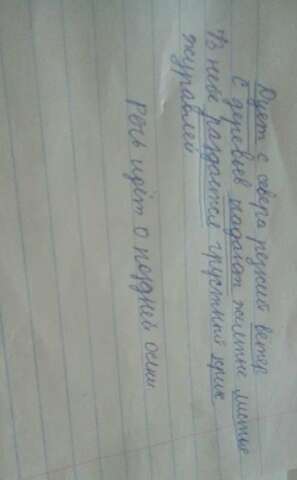 Дует с севера резкий ветер
С деревьев падают жёлтые листья
В небе раздаётся грустный крик
журавлей
Речь идёт о поздней осени